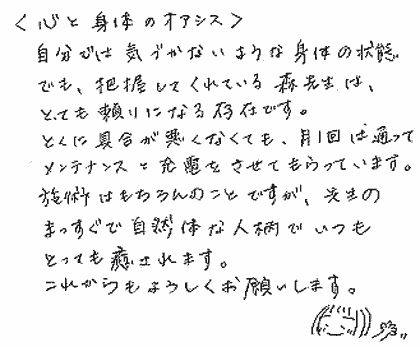 ＜心と身体のオアシス＞
自分では気づかないような身体の状態
でも、把握してくれている森先生は、
とても頼りになる存在です。
とくに具合が悪くなくても、月1回は通って
メンテナンスと充電をさせてもらっています。
施術はもちろんのことですが、先生の
まっすぐで自然体な人柄でいつも
とっても癒されます。
これからもよろしくお願いします。